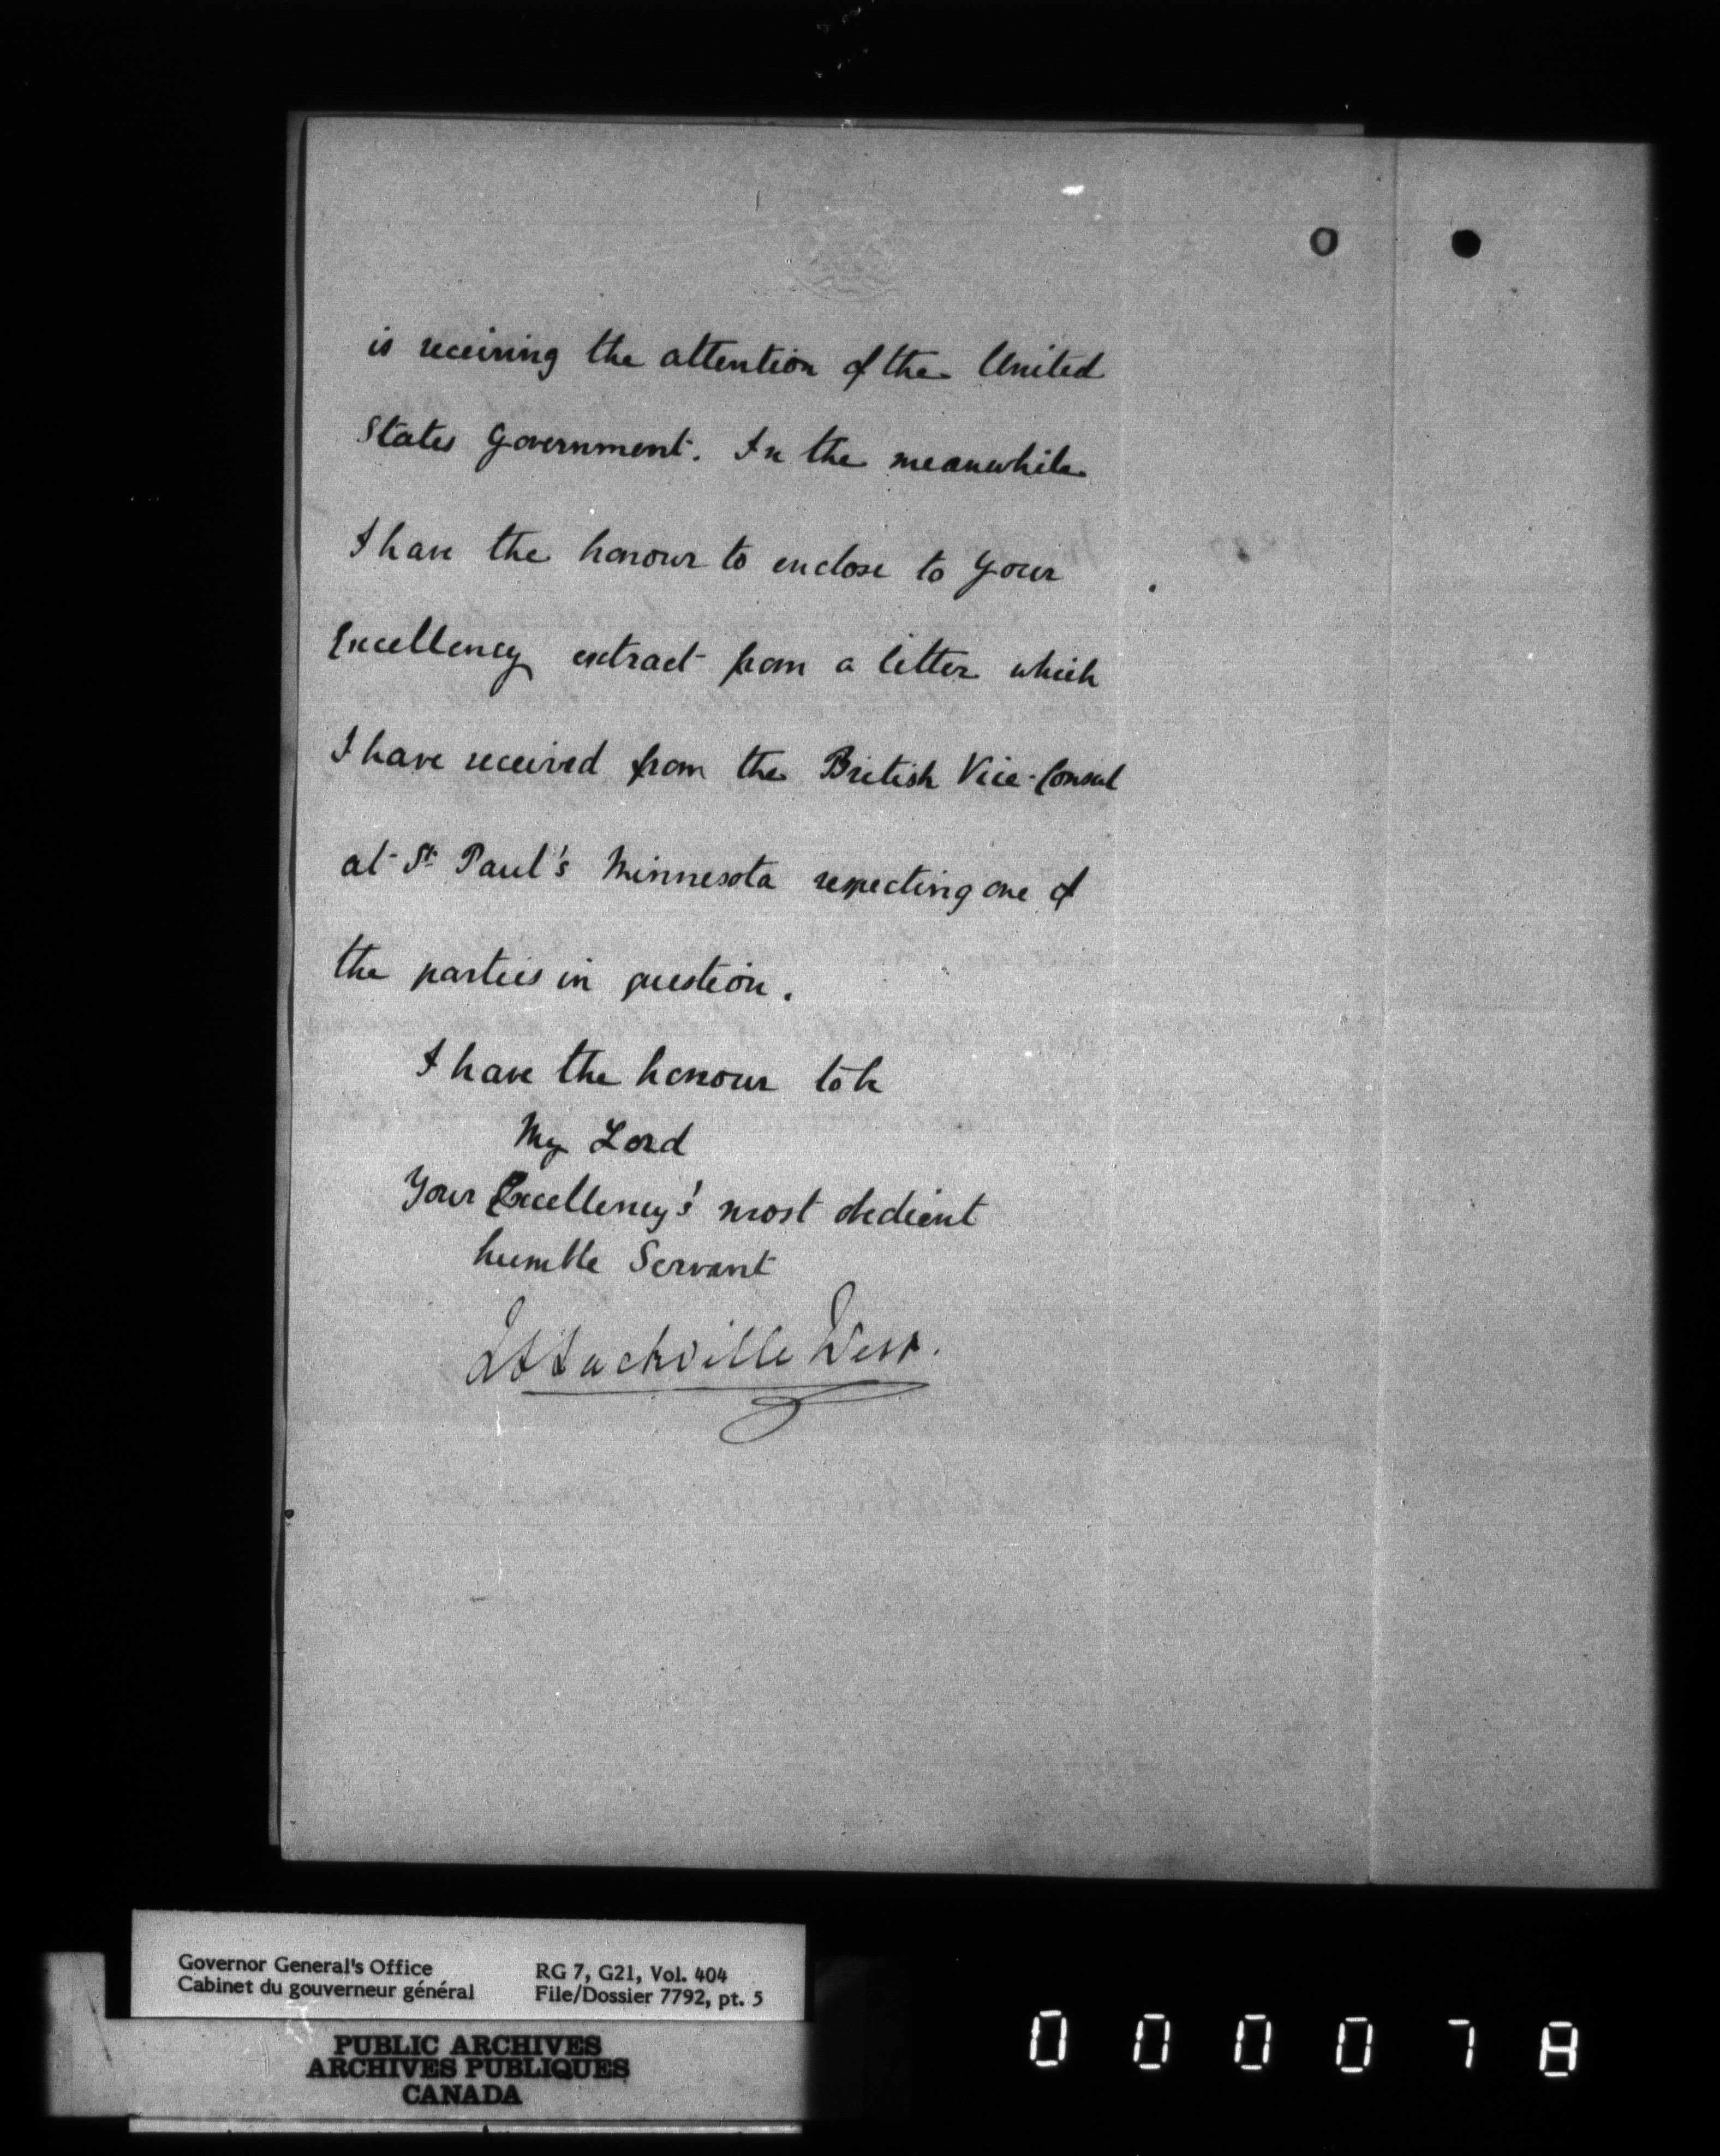 is receiving the attention of the United
States Government. In the meanwhile
I have the honour to enclose to Your
Excellency extract from a letter which
I have received from the British Vice-Consul
at St Paul's Minnesota respecting one of
the parties in question.
I have the honour to be
My Lord
Your Excellency's most obedient
humble Servant
L S Sackville West.
Governor General's Office
Cabinet du gouverneur général
RG 7, G21, Vol. 404
File/Dossier 7792, pt. 5
PUBLIC ARCHIVES
ARCHIVES PUBLIQUES
CANADA
000078